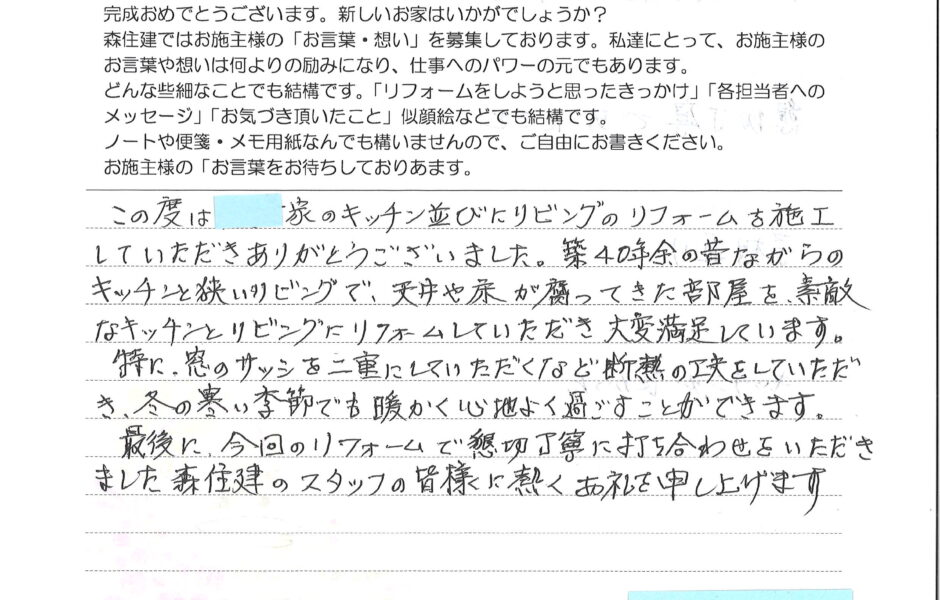 完成おめでとうございます。新しいお家はいかがでしょうか？
森住建ではお施主様の「お言葉・想い」を募集しております。私達にとって、お施主様の
お言葉や想いは何よりの励みになり、仕事へのパワーの元でもあります。
どんな些細なことでも結構です。「リフォームをしようと思ったきっかけ」「各担当者への
メッセージ」「お気づき頂いたこと」似顔絵などでも結構です。
ノートや便箋・メモ用紙なんでも構いませんので、ご自由にお書きください。
お施主様の「お言葉をお待ちしておりあます。
この度は 家のキッチン並びにリビングのリフォームを施工
していただきありがとうございました。築40年余の昔ながらの
キッチンと狭いリビングで、天井や床が腐ってきた部屋を、素敵
なキッチンとリビングにリフォームしていただき大変満足しています。
特に、窓のサッシを二重にしていただくなど断熱の工夫をしていただ
き、冬の寒い季節でも暖かく心地よく過ごすことができます。
最後に、今回のリフォームで懇切丁寧に打ち合わせをいただき
ました森住建のスタッフの皆様に熱くお礼を申し上げます